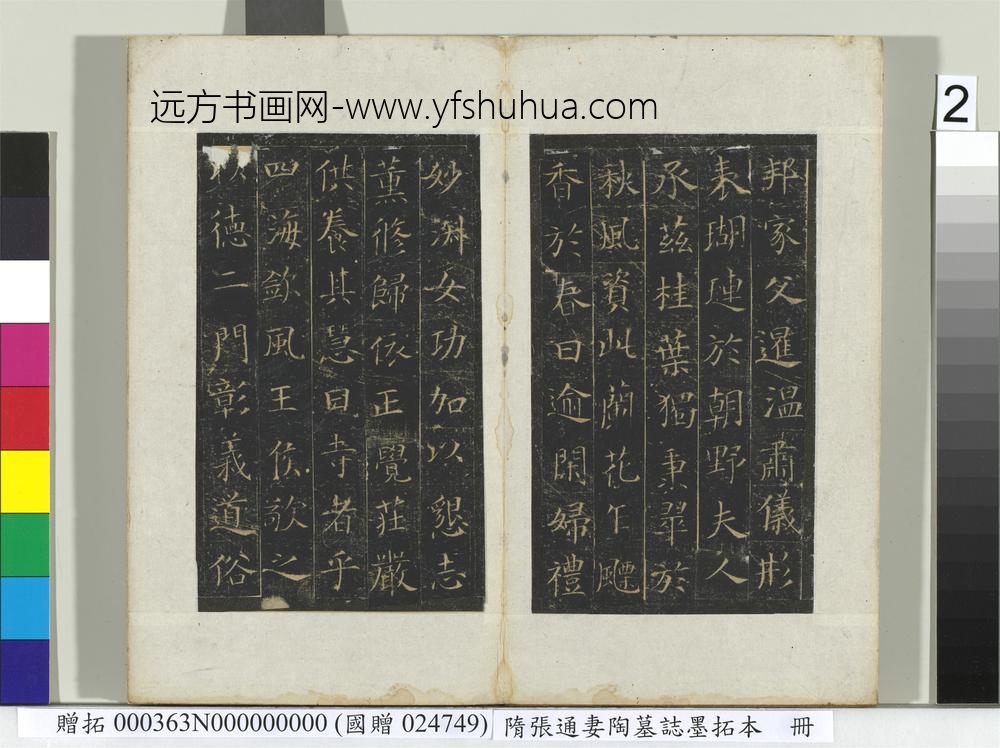 远方书画网-www.yfshuhua.com
2
邦家父暹温肅儀形
表瑚璉於朝野夫人
承茲桂葉獨秉翠於
秋風資此蘭花乍飃
香於春日逾閑婦禮
妙洲女功加以懇志
薰修歸依正覺莊嚴
供養其慧日寺者乎
四海欽風王侯歌之
德二門彰義道俗
贈拓 000363N000000000 (國贈 024749) 隋張通妻陶墓誌墨拓本 冊